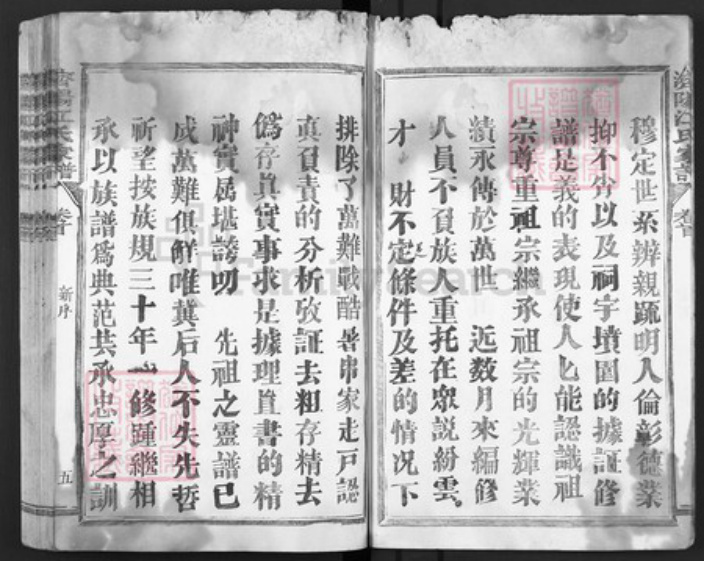 穆定世系辨親疏明人倫彰德業
抑不分以及祠宇墳園的據証修
譜是義的表現使人匕能認識祖
宗尊重祖宗繼承祖宗的光輝業
績永傳於萬世 近数月來編修
人員不負族人重托在眾説紛雲
才 財不定條件及差的情况下
排除了萬難戰酷暑串家走戸認
真負責的分析攷証去粗存精去
僞存真實事求是據理直書的精
神實属堪謗叨 先祖之靈譜已
成萬難俱觧唯冀后人不失先哲
祈望按族規三十年一修踵繼相
承以族譜爲典范共承忠厚之訓
濟陽江氏家譜 卷首
新序
五